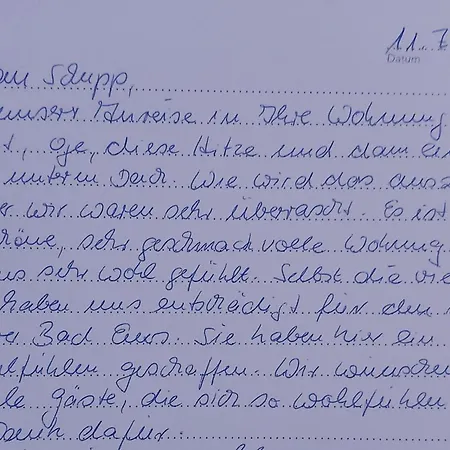 11.7
Datum
Schupp,
unsere Anreise in Ihre Wohnung
Oje, diese Hitze und dann ein
unterm Dach. Wie wird das aus
wir waren sehr überrascht. Es ist
sehr geschmackvolle Wohnung.
sehr wohl gefühlt. Selbst die vie
haben uns entschädigt für den
Bad Ems. Sie haben hier ein
lfühlen geschaffen. Wir wünschen
le Gäste, die sich so wohlfühlen
Dank dafür.